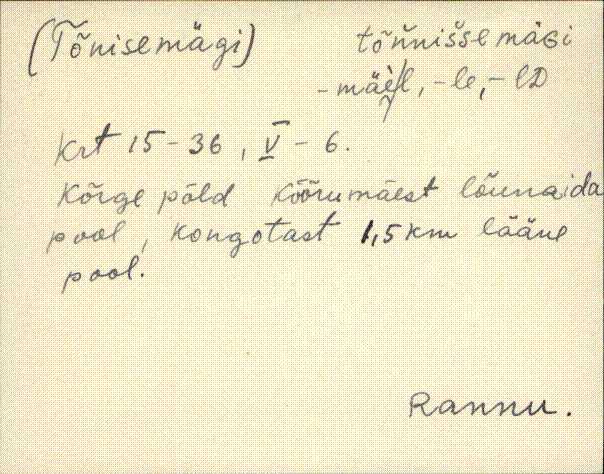 (Tõnisemägi) tõn̆nišse mäɢi
-mäèl, -le, -lD
Krt 15-36, V-6.
Kõrge põld Kõõrumäest lõunaida
pool, Kongotast 1,5 km lääne
pool.
Rannu.